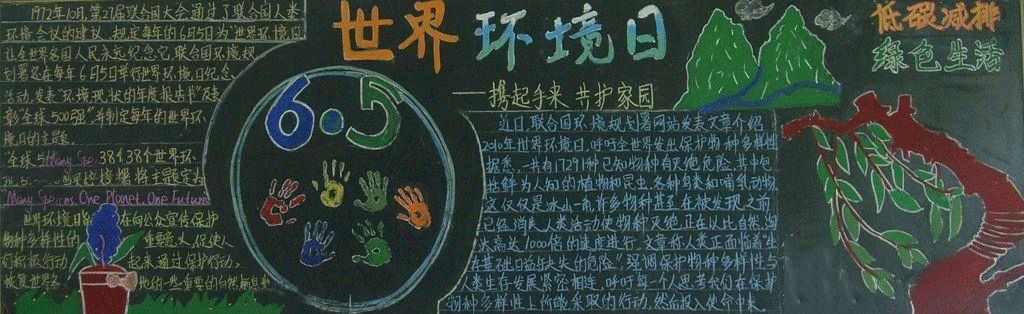 1972年10月,第27届联合国大会通过了联合国人类
环境会议的建议,规定每年的6月5日为"世界环境日"
让全世界各国人民永远纪念它,联合国环境规
划署还在每年6月5日举行世界环境日纪念
活动,发表"环境现状的年度报告书"及表
彰"全球500强",并制定每年的世界环
境日的主题。
全球 Many Spe 38个世界环
将主题定为
Many Speices. One Planet. One Future
世界环境日 在向公众宣传保护
物种多样性的 重要意义,促使人
们积极行动, 起来通过保护行动,
恢复世界各 地的一些重要的自然栖息地
世界环境日
——携起手来 共护家园
6.5
近日,联合国环境规划署网站发表文章介绍
2010年世界环境日,呼吁全世界发出保护物种多样性
据悉,一共有17291种已知物种有灭绝危险,其中包
括鲜为人知的植物和昆虫,各种鸟类和哺乳动物,
这仅仅是冰山一角,许多物种甚至在被发现之前
已经消失,人类活动使物种灭绝正在以比自然淘
汰高达1000倍的速度进行,文章称人类正面临着生
存基础日益缺失的危险",强调保护物种多样性与
人类生存发展紧密相连,呼吁每一个人思考我们在保护
物种多样性上所能采取的行动,然后投入使命中来。
低碳减排
绿色生活